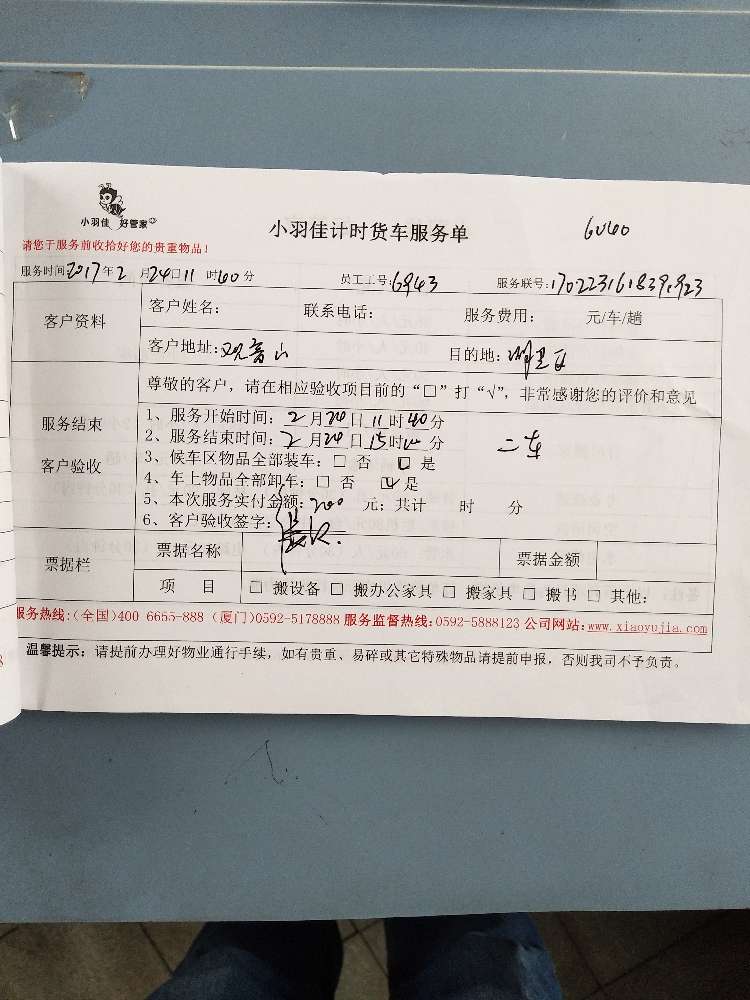 小羽佳 好管家
小羽佳计时货车服务单
6040
请您于服务前收拾好您的贵重物品！
服务时间2017年2月24日11时40分 员工工号:6943 服务联号:
客户资料
客户姓名: 联系电话: 服务费用: 元/车/趟
客户地址:观音山 目的地:
尊敬的客户，请在相应验收项目前的“□”打“√”，非常感谢您的评价和意见
服务结束
客户验收
1、服务开始时间:2月24日11时40分
2、服务结束时间:2月24日15时 分
二车
3、候车区物品全部装车:□ 否 □ 是
4、车上物品全部卸车:□ 否 ☑ 是
5、本次服务实付金额:200 元；共计 时 分
6、客户验收签字:
票据栏
票据名称 票据金额
项 目 □ 搬设备 □ 搬办公家具 □ 搬家具 □ 搬书 □ 其他:
服务热线:(全国)400 6655-888 (厦门)0592-5178888 服务监督热线:0592-5888123 公司网站:www.xiaoyujia.com
温馨提示: 请提前办理好物业通行手续，如有贵重、易碎或其它特殊物品请提前申报，否则我司不予负责。